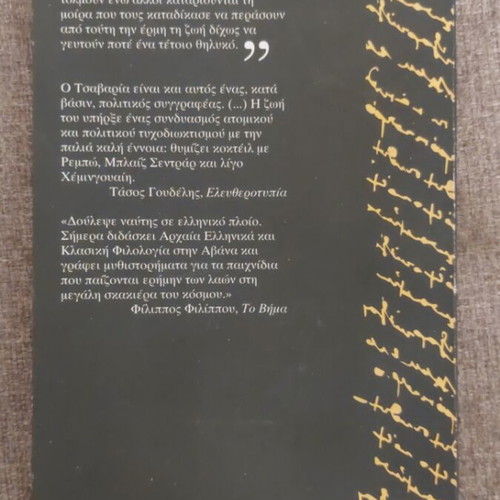 τολμούν ενώ άλλοι καταριούνται τη
μοίρα που τους καταδίκασε να περάσουν
από τούτη την έρμη τη ζωή δίχως να
γευτούν ποτέ ένα τέτοιο θηλυκό. ”
Ο Τσαβαρία είναι και αυτός ένας, κατά
βάσιν, πολιτικός συγγραφέας. (...) Η ζωή
του υπήρξε ένας συνδυασμός ατομικού
και πολιτικού τυχοδιωκτισμού με την
παλιά καλή έννοια: θυμίζει κοκτέιλ με
Ρεμπώ, Μπλαίζ Σεντράρ και λίγο
Χέμινγουαίη.
Τάσος Γουδέλης, Ελευθεροτυπία
«Δούλεψε ναύτης σε ελληνικό πλοίο.
Σήμερα διδάσκει Αρχαία Ελληνικά και
Κλασική Φιλολογία στην Αβάνα και
γράφει μυθιστορήματα για τα παιχνίδια
που παίζονται ερήμην των λαών στη
μεγάλη σκακιέρα του κόσμου.»
Φίλιππος Φιλίππου, Το Βήμα